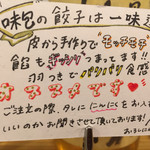 味呂の餃子は一味違
皮から手作りで"モッチモチ"
餡もギッシリつまってます!!
羽つきでパリパリ食感
オススメです
ご注文の際、タレににんにくをお入
いいのかお聞きさせて頂いております!